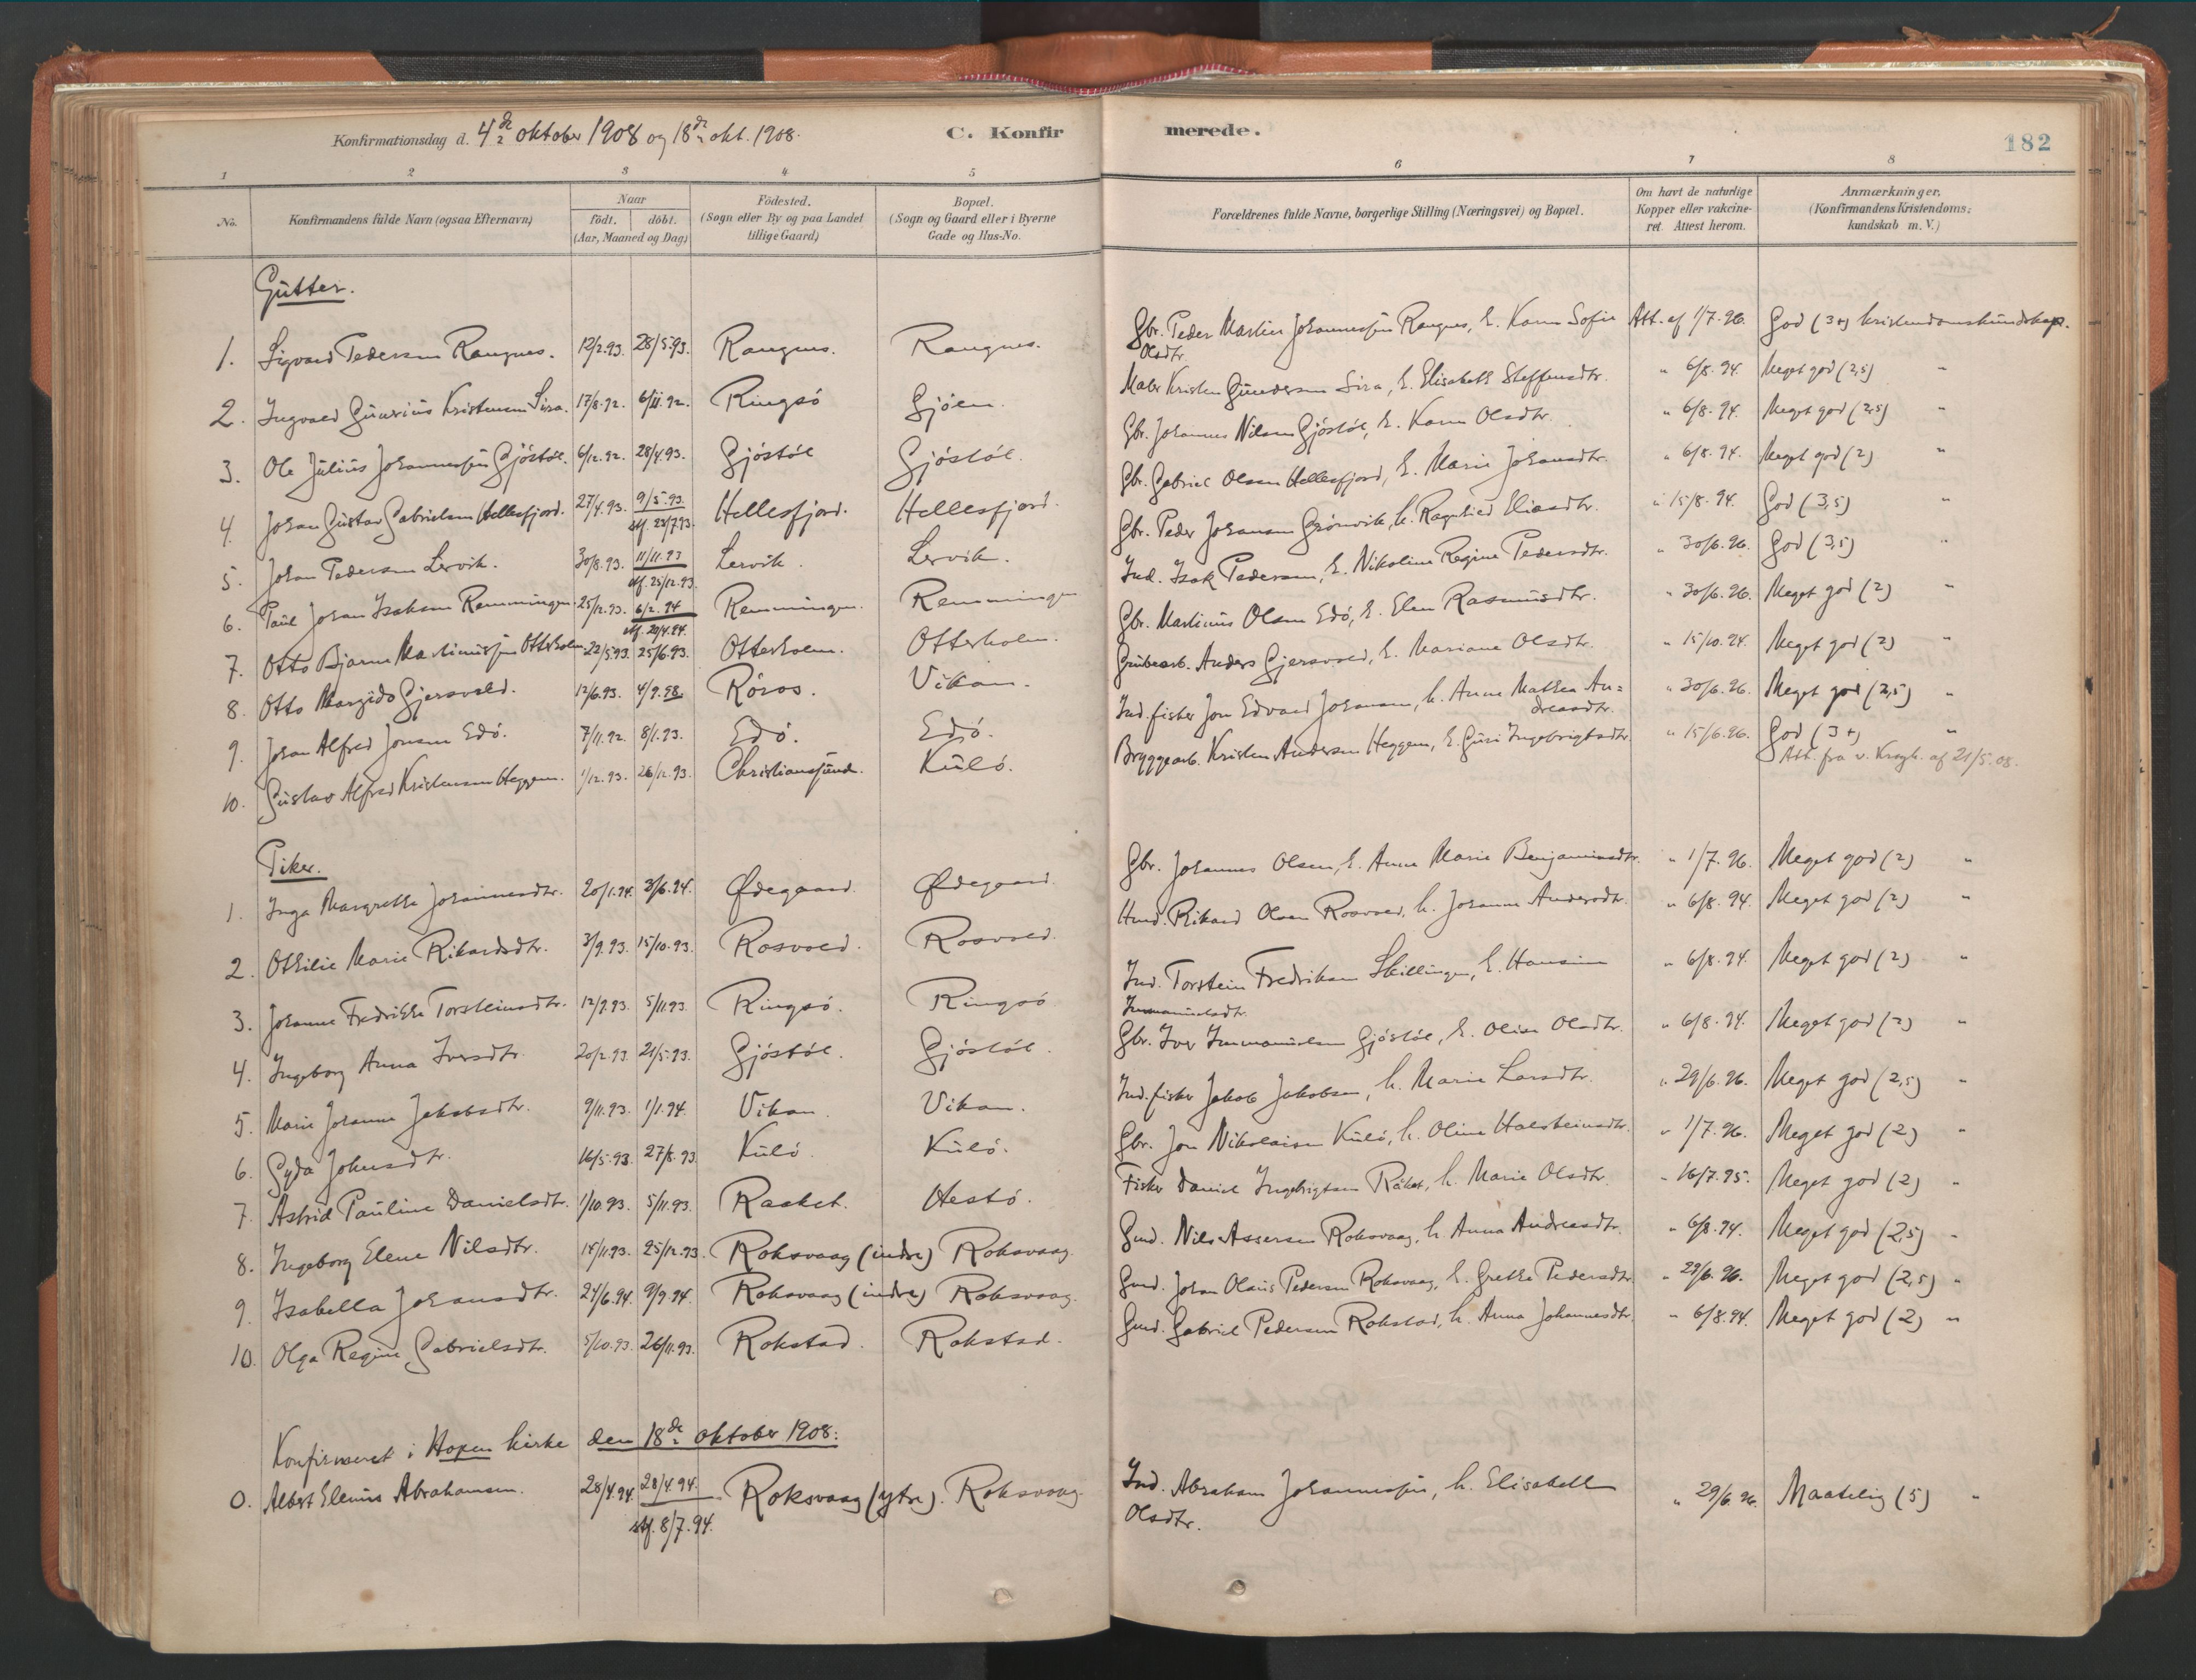 Konfirmationsdag d. 4de oktober 1908 og 18de okt. 1908.
C. Konfir
merede.
182
1 2 3 4 5 6 7 8
No.
Konfirmandens fulde Navn (ogsaa Efternavn)
Naar
födt. döbt.
(Aar, Maaned og Dag)
Födested.
(Sogn eller By og paa Landet
tillige Gaard)
Bopæl.
(Sogn og Gaard eller i Byerne
Gade og Hus-No.
Forældrenes fulde Navne, borgerlige Stilling (Næringsvei) og Bopæl.
Om havt de naturlige
Kopper eller vakcine-
ret. Attest herom.
Anmærkninger,
(Konfirmandens Kristendoms-
kundskab m. V.)
Gutter.
1. Sigvard Pedersen Rangnes. 12/2.93. 28/5.93. Rangnes. Rangnes. Gbr. Peder Martin Johannessen Rangnes, h. Karen Sofie Att. af 1/7.96. God (3+) kristendomskundskap.
Olsdtr.
2. Ingvald Gunerius Kristensen Sira. 17/8.92. 6/11.92. Ringsö Gjöen. Maler Kristen Gundersen Sira, h. Elisabeth Steffensdtr. " 6/8.94. Meget god (2,5) "
3. Ole Julius Johannessen Gjöstöl. 6/12.92. 28/4.93. Gjöstöl Gjöstöl. Gbr. Johannes Nilsen Gjöstöl, h. Karen Olsdtr. " 6/8.94. Meget god (2,5) "
4. Johan Gustav Gabrielsen Hellesfjord. 27/4.93. 9/5.93. Hellesfjord. Hellesfjord. Gbr. Gabriel Olsen Hellesfjord, h. Marie Johansdtr. " 6/8.94. Meget god (2) "
stf. 23/7.93.
5. Johan Pedersen Lervik. 30/8.93. 11/11.93 Lervik. Lervik. Gbr. Peder Johansen Grönvik, h. Ragnhild Eliasdtr. " 15/8.94. God (3,5) "
stf. 25/12.93.
6. Paul Johan Isaksen Remmingen. 25/12.93. 6/2.94 Remmingen. Remmingen Ind. Isak Pedersen, h. Nikoline Regine Pedersdtr. " 30/6.96. God (3,5) "
stf. 20/4.94.
7. Otto Bjarne Martinussen Otterholm. 22/5.93. 25/6.93. Otterholm. Otterholm. Gbr. Martinus Olsen Edö, h. Elen Rasmusdtr. " 30/6.96. Meget god (2) "
8. Otto Margido Gjersvold. 12/6.93. 4/9.98 Röros. Vikan. Grubearb. Anders Gjersvold, h. Mariane Olsdtr. " 15/10.94. Meget god (2) "
9. Johan Alfred Jonsen Edö. 7/11.92. 8/1.93. Edö. Edö. Ind. fisker Jon Edvard Johansen, h. Anne Mathea An= " 30/6.96. Meget god (2,5) "
dreasdtr.
10. Gustav Alfred Kristensen Heggem. 1/12.93. 26/12.93. Christiansund. Kulö. Bryggearb. Kristen Andersen Heggem, h. Guri Ingebrigtsdtr. " 15/6.96. God (3+) "
Att. fra v. Krogh. af 21/5.08.
Piker.
1. Inga Margrethe Johannesdtr. 20/1.94. 3/6.94. Ødegaard. Ødegaard. Gbr. Johannes Olsen, h. Anne Marie Benjaminsdtr. " 1/7.96. Meget god (2) "
2. Othilie Marie Rikardsdtr. 3/9.93. 15/10.93. Rosvold. Rosvold. Husd. Rikard Olsen Rosvold, h. Johanna Andersdtr. " 6/8.94. Meget god (2) "
3. Johanne Fredrikke Torsteinsdtr. 12/9.93. 5/11.93 Ringsö. Ringsö Ind. Torstein Fredriksen Skillingen, h. Hansine " 6/8.94. Meget god (2) "
Immanuelsdtr.
4. Ingeborg Anna Iversdtr. 20/2.93. 21/5.93. Gjöstöl. Gjöstöl. Gbr. Iver Immanuelsen Gjöstöl, h. Oline Olsdtr. " 6/8.94. Meget god (2) "
5. Marie Johanne Jakobsdtr. 9/11.93. 1/1.94. Vikan. Vikan. Ind. fisker Jakob Jakobsen, h. Marie Larsdtr. " 29/6.96. Meget god (2,5) "
6. Gyda Johnsdtr. 16/5.93. 27/8.93 Kulö. Kulö. Gbr. Jon Nikolaisen Kulö, h. Oline Halsteinsdtr. " 1/7.96. Meget god (2) "
7. Astrid Pauline Danielsdtr. 1/10.93. 5/11.93. Raaket. Hestö. Fisker Daniel Ingebrigtsen Råket, h. Marie Olsdtr. " 16/7.95. Meget god (2) "
8. Ingeborg Elene Nilsdtr. 14/11.93. 25/12.93. Roksvaag (indre) Roksvaag. Gmd. Nils Assersen Roksvaag, h. Anna Andreasdtr. " 6/8.94. Meget god (2,5) "
9. Isabella Johansdtr. 24/6.94. 9/9.94. Roksvaag (indre) Roksvaag. Gmd. Johan Olaus Pedersen Roksvaag, h. Grethe Pedersdtr. " 29/6.96. Meget god (2,5) "
10. Olga Regine Gabrielsdtr. 5/10.93. 26/11.93. Rokstad. Rokstad. Gmd. Gabriel Pedersen Rokstad, h. Anna Johannesdtr. " 6/8.94. Meget god (2) "
Konfirmeret i Hopen kirke den 18de oktober 1908:
0. Albert Elenius Abrahamsen. 28/4.94. 28/4.94. Roksvaag (ytre). Roksvaag. Ind. Abraham Johannessen, h. Elisabeth " 29/6.96. Maatelig (5) "
stf. 8/7.94. Olsdtr.